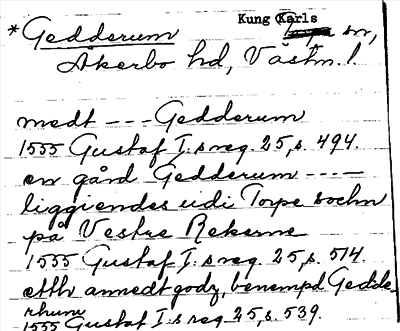 Kung Karls
*Gedderum sn,
Åkerbo hd, Västm. l.
medt --- Gedderum
1555 Gustaf I:s reg. 25, s. 494.
en gård Gedderum ----
liggiendes udi Torpe sochn
på Vestre Rekarne
1555 Gustaf I:s reg. 25, s. 514.
etth annedt godz, benempd Gedde-
rhum
1555 Gustaf I:s reg. 25, s. 539.